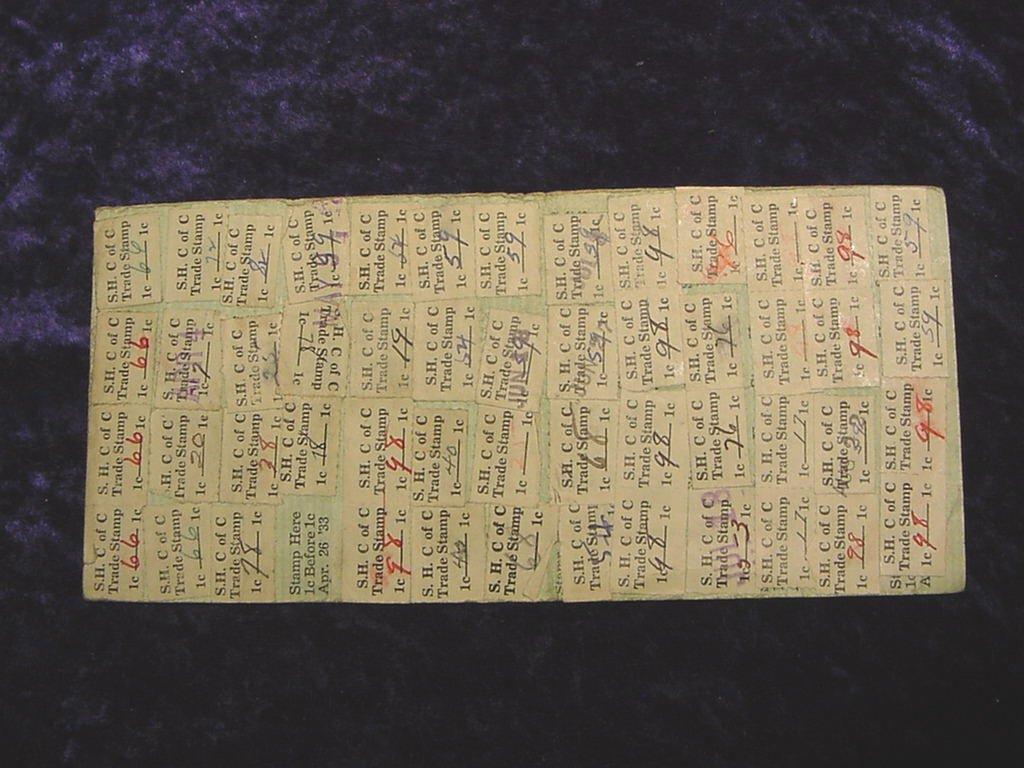 S. H. C of C
Trade Stamp
1c 66 1c
S. H. C of C
Trade Stamp
1c 66 1c
S.H. C of C
Trade Stamp
1c 66 1c
S.H. C of C
Trade Stamp
1c 66 1c
S.H. C of C
Trade Stamp
1c 66 1c
S. H. C of C
Trade Stamp
1c 20 1c
S.H. C of C
Trade Stamp
1c
S.H. C of C
Trade Stamp
1c 72 1c
S.H. C of C
Trade Stamp
1c 78 1c
S.H. C of C
Trade Stamp
1c 38 1c
S.H. C of C
Trade Stamp
1c
S.H. C of C
Trade Stamp
1c 1c
Stamp Here
1c Before 1c
Apr. 26 '33
S.H. C of C
Trade Stamp
1c 18 1c
S. H. C of C
Trade Stamp
1c 78 1c
S.H. C of C
Trade Stamp
1c 59 1c
S.H. C of C
Trade Stamp
1c 98 1c
S.H. C of C
Trade Stamp
1c 98 1c
S.H. C of C
Trade Stamp
1c 19 1c
S.H. C of C
Trade Stamp
1c 1c
S.H. C of C
Trade Stamp
1c 40 1c
S.H. C of C
Trade Stamp
1c 40 1c
S.H. C of C
Trade Stamp
1c 54 1c
S.H. C of C
Trade Stamp
1c 59 1c
S. H. C of C
Trade Stamp
1c 68 1c
S.H. C of C
Trade Stamp
1c 1c
S.H. C of C
Trade Stamp
1c 59 1c
S.H. C of C
Trade Stamp
1c 59 1c
S.H. C of C
Trade Stamp
1c 54 1c
S.H. C of C
Trade Stamp
1c 68 1c
S.H. C of C
Trade Stamp
1c 59 1c
S.H. C of C
Trade Stamp
1c 59 1c
S.H. C of C
Trade Stamp
1c 98 1c
S.H. C of C
Trade Stamp
1c 98 1c
S.H. C of C
Trade Stamp
1c 98 1c
S.H. C of C
Trade Stamp
1c 98 1c
S. H. C of C
Trade Stamp
1c 53 1c
S.H. C of C
Trade Stamp
1c 76 1c
S.H. C of C
Trade Stamp
1c 76 1c
S.H. C of C
Trade Stamp
1c 76 1c
S.H. C of C
Trade Stamp
1c 17 1c
S.H. C of C
Trade Stamp
1c 17 1c
S.H. C of C
Trade Stamp
1c 1c
S.H. C of C
Trade Stamp
1c 1c
S.H. C of C
Trade Stamp
1c 98 1c
S.H. C of C
Trade Stamp
1c 1c
S.H. C of C
Trade Stamp
1c 98 1c
S.H. C of C
Trade Stamp
1c 98 1c
S.H. C of C
Trade Stamp
1c 98 1c
S.H. C of C
Trade Stamp
1c 98 1c
S.H. C of C
Trade Stamp
1c 59 1c
S.H. C of C
Trade Stamp
1c 59 1c